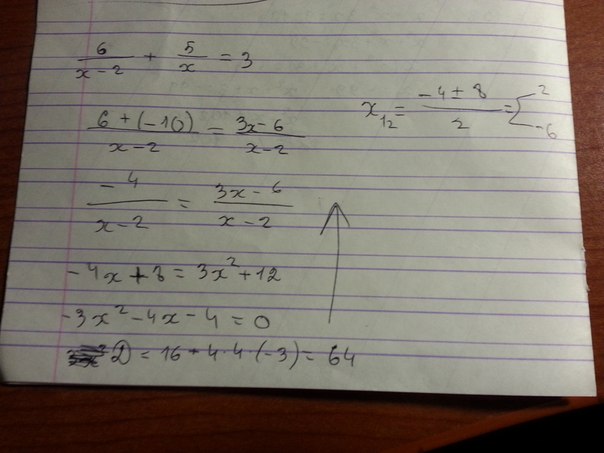 6/(x-2) + 5/x = 3
(6 + (-10))/(x-2) = (3x-6)/(x-2)
-4/(x-2) = (3x-6)/(x-2)
-4x + 8 = 3x² + 12
-3x² - 4x - 4 = 0
D = 16 - 4·4·(-3) = 64
x₁₂ = (-4 ± 8)/2 = 2
-6